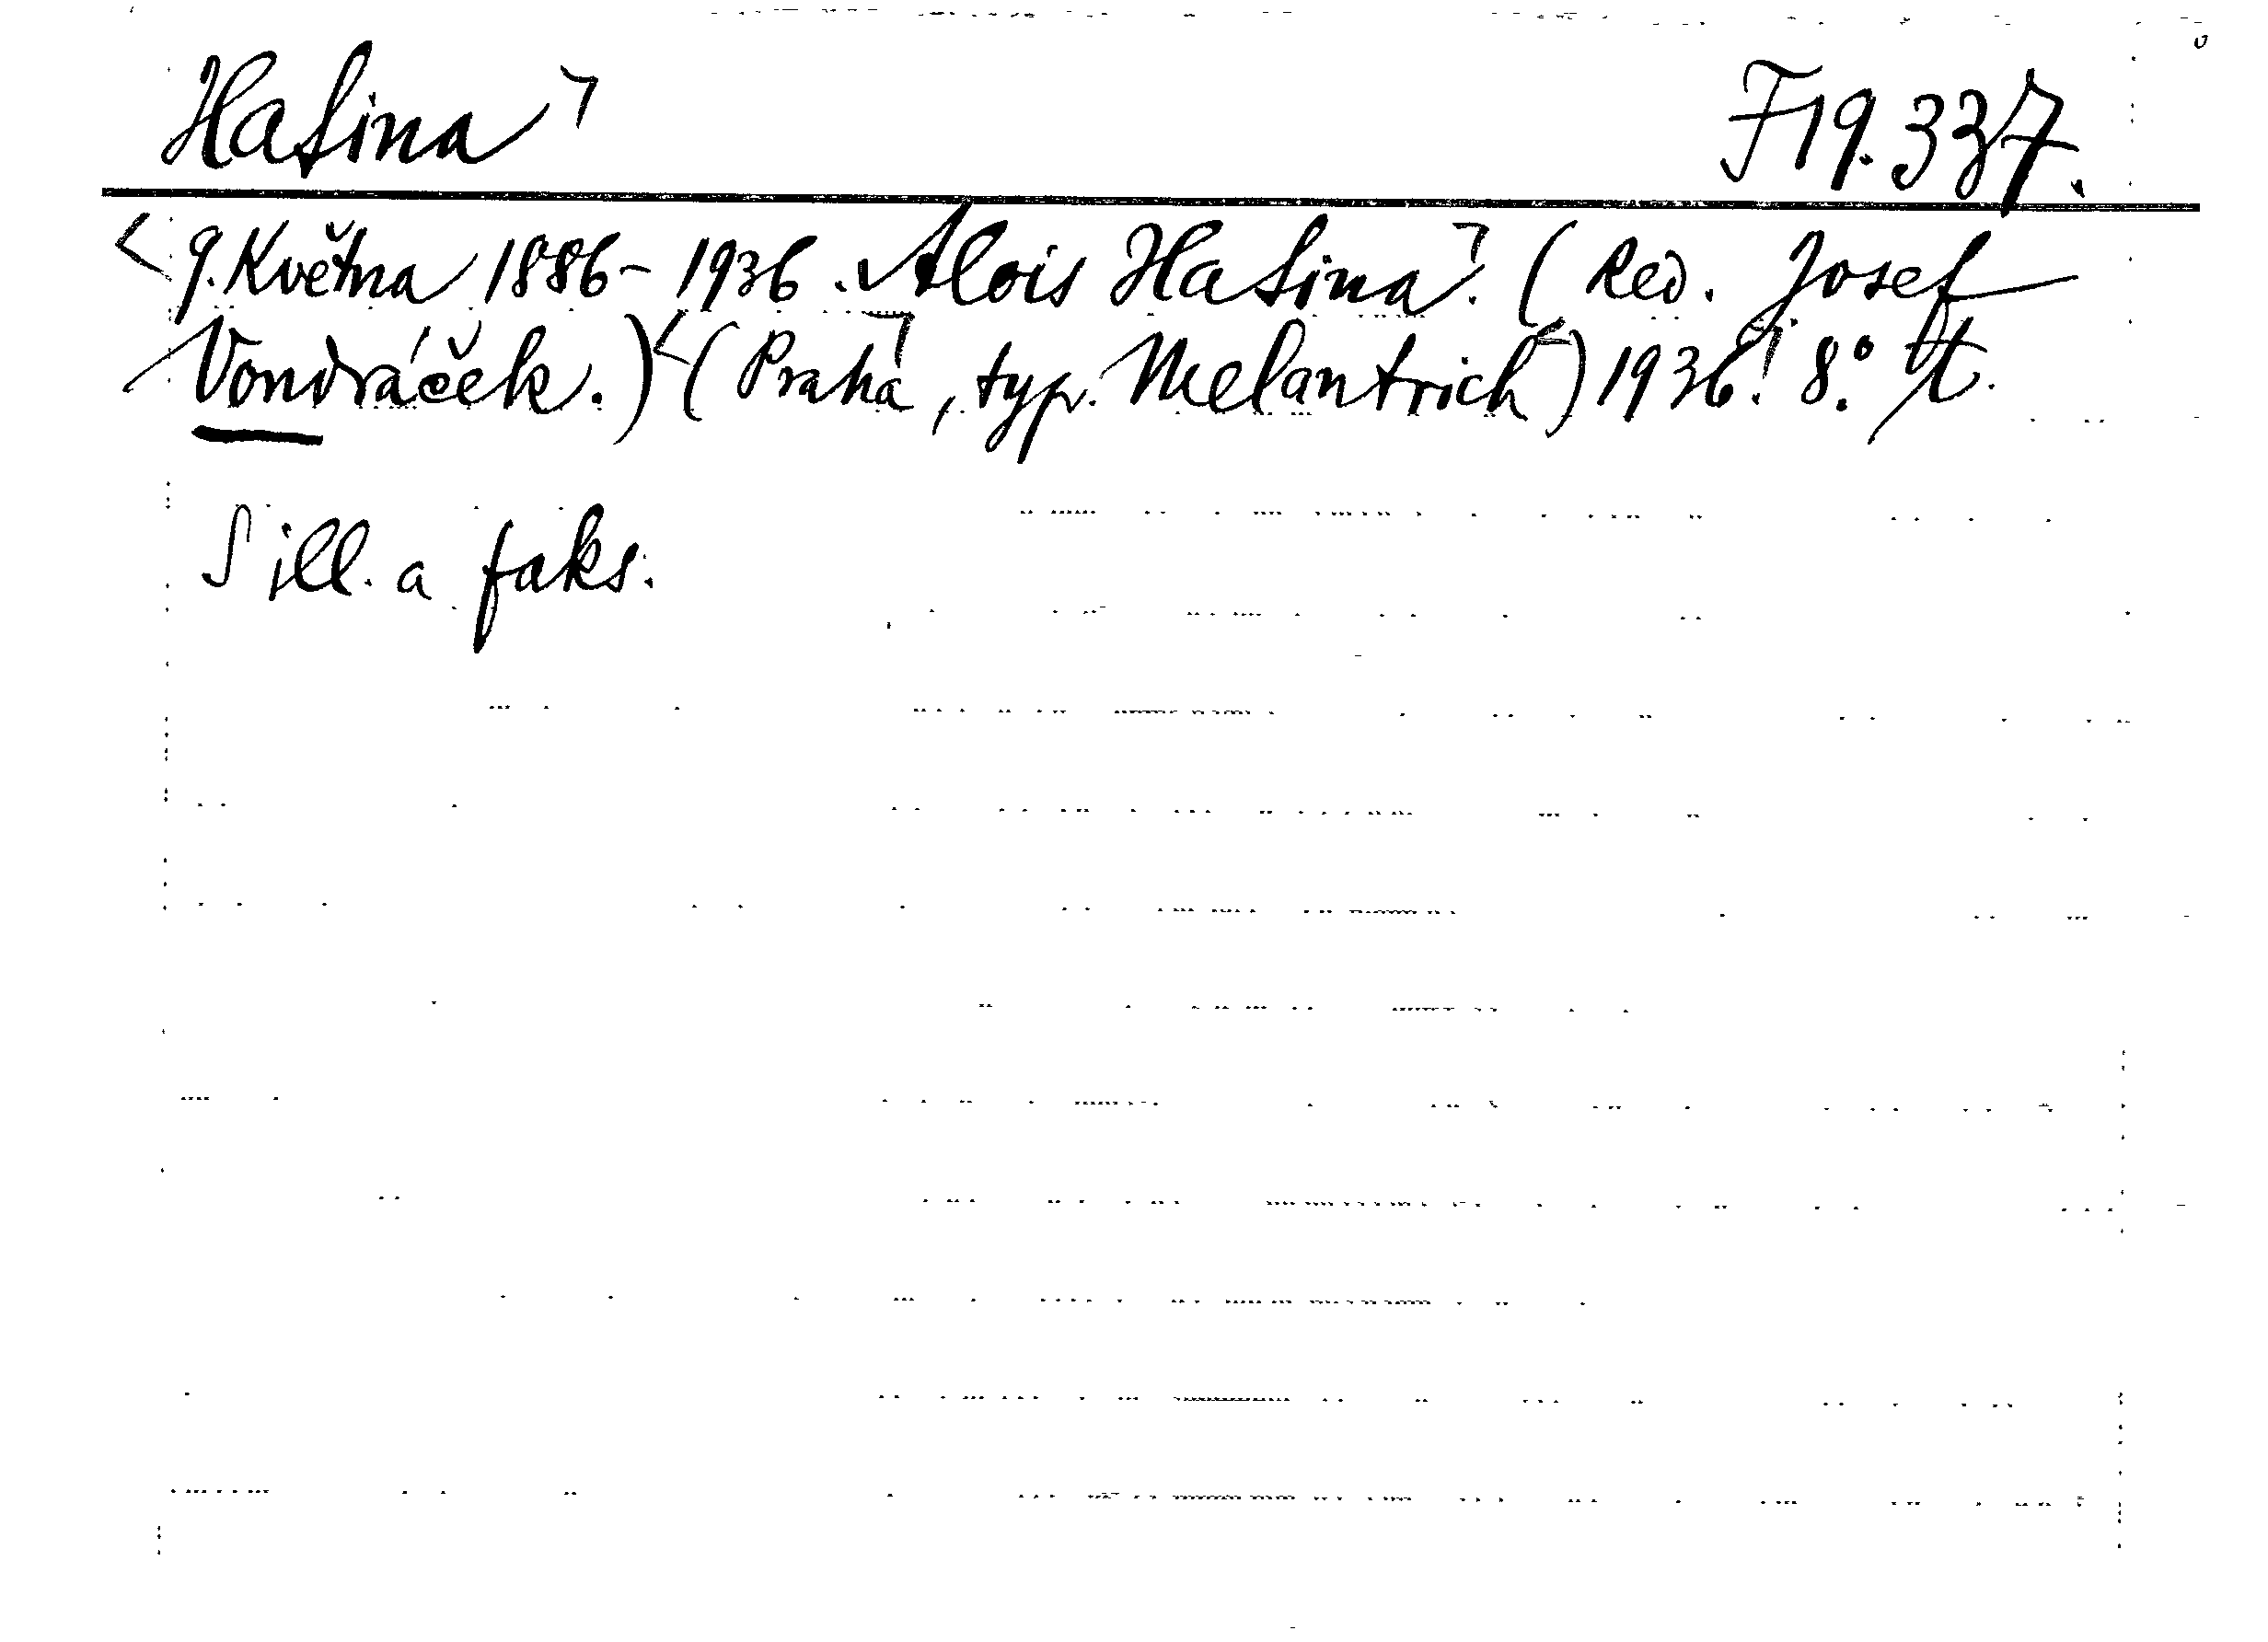 Hasina ┐ F 19.337.
< 9. Května 1886 - 1936. Alois Hasina ┐. (Red. Josef
Vondráček.) < (Praha ┐, typ. Melantrich) 1936. 8°. t.
S ill. a faks.